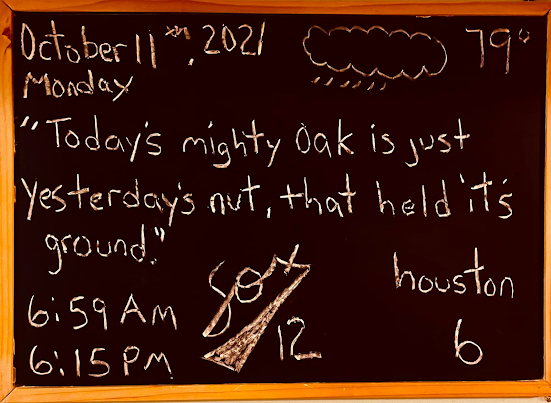 October 11th, 2021
79°
Monday
"Today's mighty Oak is just
yesterday's nut, that held it's
ground."
6:59 AM
Sox
12
houston
6
6:15 PM